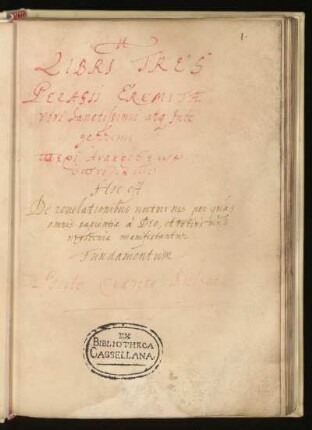 1.
LIBRI TRES
PELAGII EREMITÆ
viri Sanctissimi atq; Inte
gerrimi
περὶ
Hoc est
De reuelationibus nocturnis per quas
omnis sapientia à Deo, et totius mundi
mysteria manifestantur
Fundamentum
EX
BIBLIOTHECA
CASSELLANA.